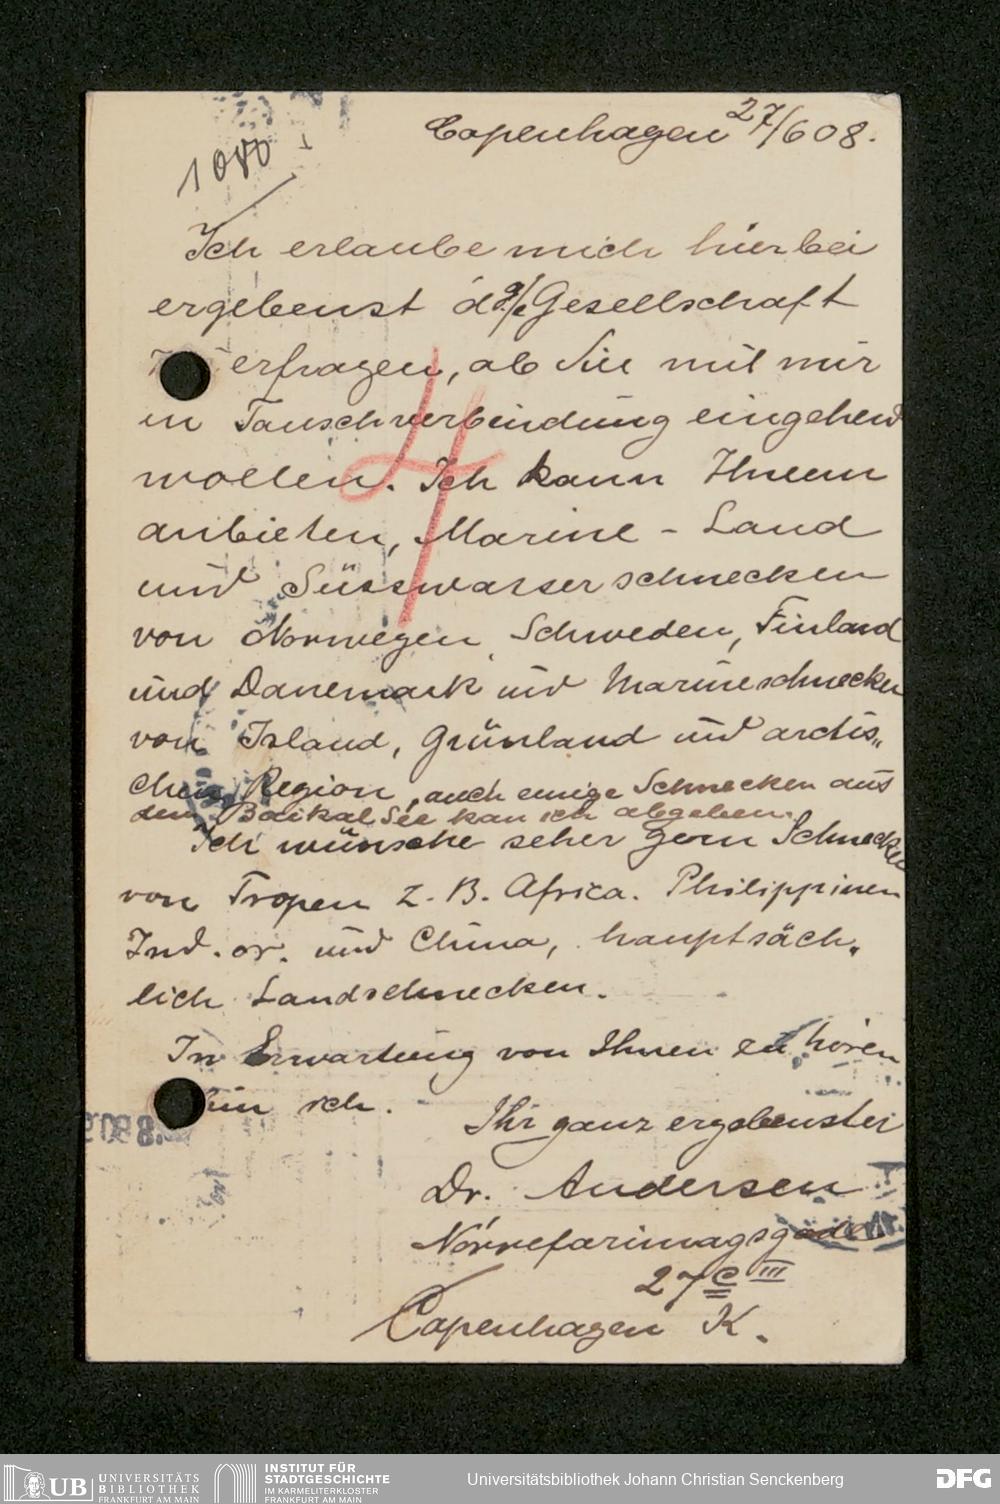 Copenhagen 27/6 08.
1080
Ich erlaube mich hierbei
ergebenst d Gesellschaft
erfragen, ob Sie mit mir
in Tauschverbindung eingehend
wollen. Ich kann Ihnen
anbieten, Marine - Land
und Süsswasserschnecken
von Norwegen, Schweden, Finland
und Danemark und Marineschnecken
von Island, Grünland und arctis„
chen Region, auch einige Schnecken aus
dem Baikal See kan ich abgeben.
Ich wünsche seher gern Schnecken
von Tropen z. B. Africa. Philippinen
Ind. or. und China, hauptsäch„
lich Landschnecken.
In Erwartung von Ihnen zu hören
bin ich.
Ihr ganz ergebenster
Dr. Andersen
Nörrefarimagsgade
27 C III
Copenhagen K.
4
UB UNIVERSITÄTS
BIBLIOTHEK
FRANKFURT AM MAIN
INSTITUT FÜR
STADTGESCHICHTE
IM KARMELITERKLOSTER
FRANKFURT AM MAIN
Universitätsbibliothek Johann Christian Senckenberg
DFG